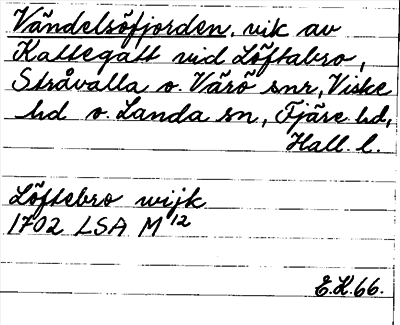 Vändelsöfjorden, vik av
Kattegatt vid Löftabro,
Stråvalla o. Värö snr, Viske
hd o. Landa sn, Fjäre hd,
Hall. l.
Löftebro wijk
1702 LSA M 12
E.K. 66.